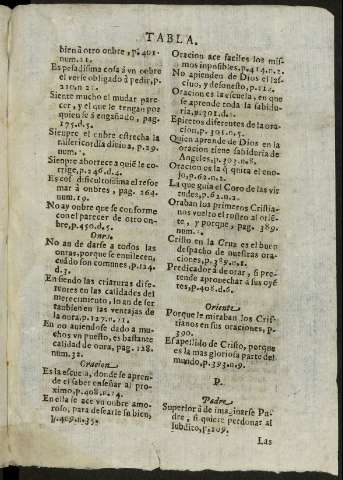 TABLA.
bien à otro onbre, p. 401.
num. 21.
Es pesadissima cosa à vn onbre
el verse obligado à pedir, p.
210. n 21.
Siente mucho el mudar pare-
cer, y el que le tengan por
quien se à engañado, pag.
175. d. 5.
Sienpre el onbre estrecha la
misericordia divina, p. 29.
num. 1.
Sienpre aborrece a quiē le co-
rrige, p. 146. d. 4.
Es cosa dificultosissima el refor
mar à onbres, pag. 264.
num. 19.
No ay onbre que se conforme
con el parecer de otro on-
bre, p. 450. d. 5.
Onra.
No an de darse à todos las
onras, porque se envilecen,
cuādo son comunes, p. 124.
d. 3.
En siendo las criaturas dife-
rentes en las calidades del
merecimiento, lo an de ser
tanbien en las ventajas de
la onra, p. 127. n. 11.
En no aviendose dado a mu-
chos vn puesto, es bastante
calidad de onra, pag. 128.
num. 32.
Oracion
Es la escuela, donde se apren-
de el saber enseñar al pro-
ximo, p. 408. n. 14.
En ella se ace vn onbre amo-
roso, para desearle su bien,
p. 409. n. 35.
Oracion ace faciles los mis-
mos inposibles, p. 414. n. 2.
No aprienden de Dios el las-
civo, y desonesto, p. 112.
Oracion es la escuela, en que
se aprende toda la sabidu-
ria, p. 301. d. 1.
Epitetos diferentes de la ora-
cion, p. 301. n. 5.
Quien aprende de Dios en la
oracion tiene sabiduria de
Angeles, p. 303. n. 8.
Oracion es la q̄ quita el eno-
jo, p. 62. n. 2.
La que guia el Coro de las vir
tudes, p. 62. n. 2.
Oraban los primeros Cristia-
nos vuelto el rostro al oriē-
te, y porque, pag. 389.
num. 1.
Cristo en la Cruz es el buen
despacho de nuestras ora-
ciones, p. 389. n. 1.
Predicador à de orar, si pre-
tende aprovechar à sus oyē
tes, p. 408. d. 6.
Oriente
Porque le miraban los Cris-
tianos en sus oraciones, p.
390.
Es apellido de Cristo, porque
es la mas gloriosa parte del
mundo, p. 393. n. 9.
P.
Padre
Superior à de imaginarse Pa-
dre, si quiere perdonar al
subdito, p. 209.
Las